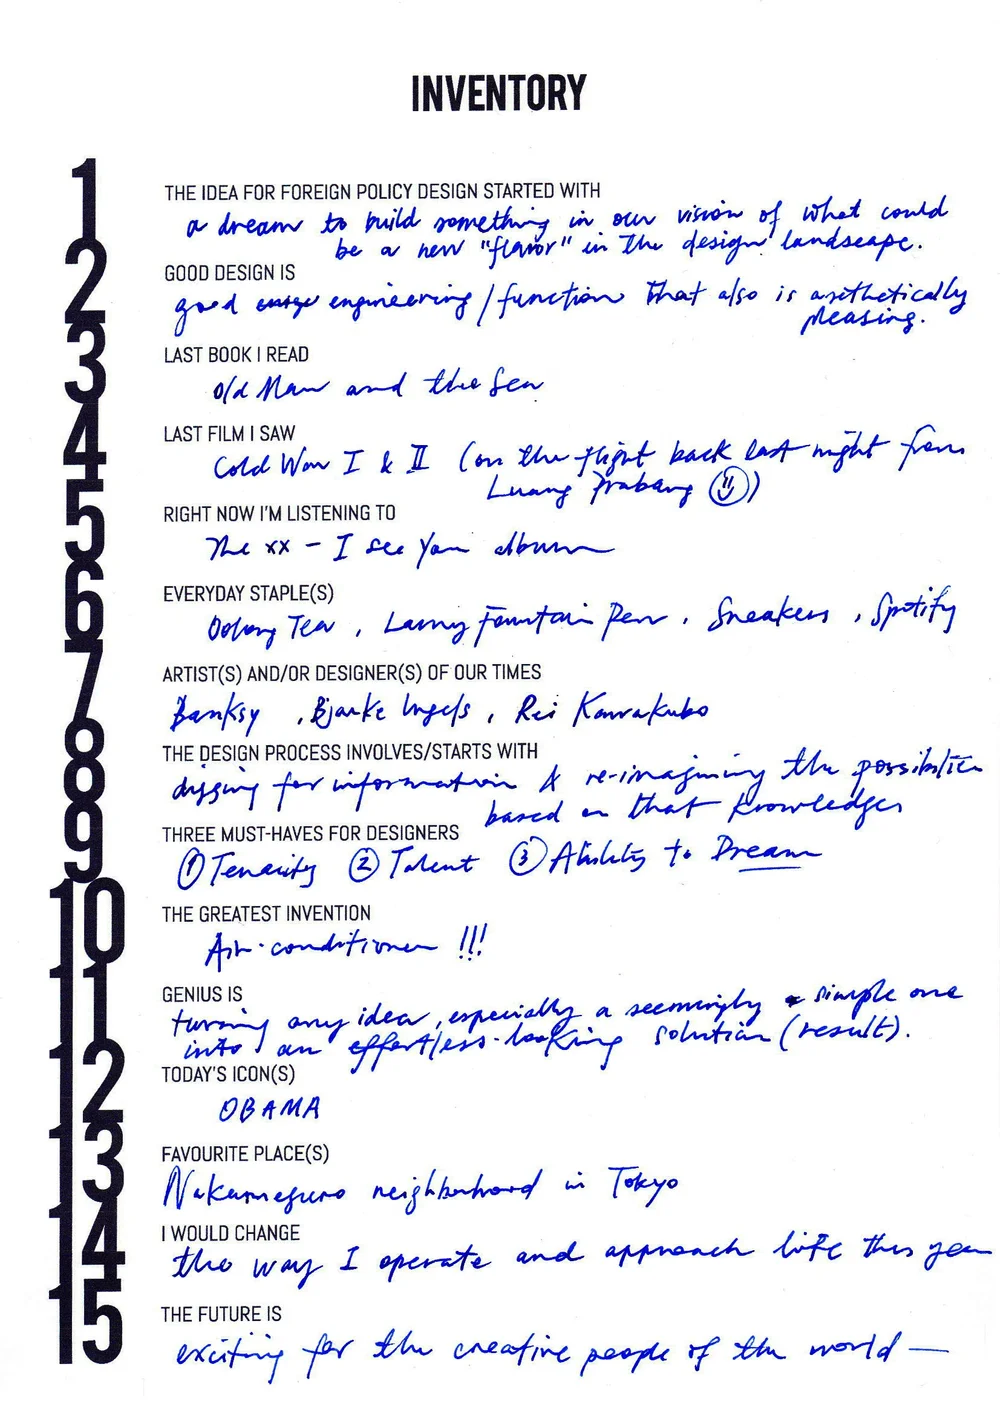 INVENTORY
1
THE IDEA FOR FOREIGN POLICY DESIGN STARTED WITH
a dream to build something in our vision of what could
be a new "flavor" in the design landscape.
2
GOOD DESIGN IS
good engineering/function that also is aesthetically
pleasing.
3
LAST BOOK I READ
Old Man and the Sea
4
LAST FILM I SAW
Cold War I & II (on the flight back last night from
Luang Prabang )
5
RIGHT NOW I'M LISTENING TO
The xx - I see You album
6
EVERYDAY STAPLE(S)
Oolong Tea, Lamy Fountain Pen, Sneakers, Spotify
7
ARTIST(S) AND/OR DESIGNER(S) OF OUR TIMES
Banksy, Bjarke Ingels, Rei Kawakubo
8
THE DESIGN PROCESS INVOLVES/STARTS WITH
digging for information & re-imagining the possibilities
based on that knowledge
9
THREE MUST-HAVES FOR DESIGNERS
① Tenacity ② Talent ③ Ability to Dream
10
THE GREATEST INVENTION
Air-conditioner !!!
11
GENIUS IS
turning any idea, especially a seemingly simple one
into an effortless-looking solution (result).
12
TODAY'S ICON(S)
OBAMA
13
FAVOURITE PLACE(S)
Nakameguro neighborhood in Tokyo
14
I WOULD CHANGE
the way I operate and approach life this year
15
THE FUTURE IS
exciting for the creative people of the world —